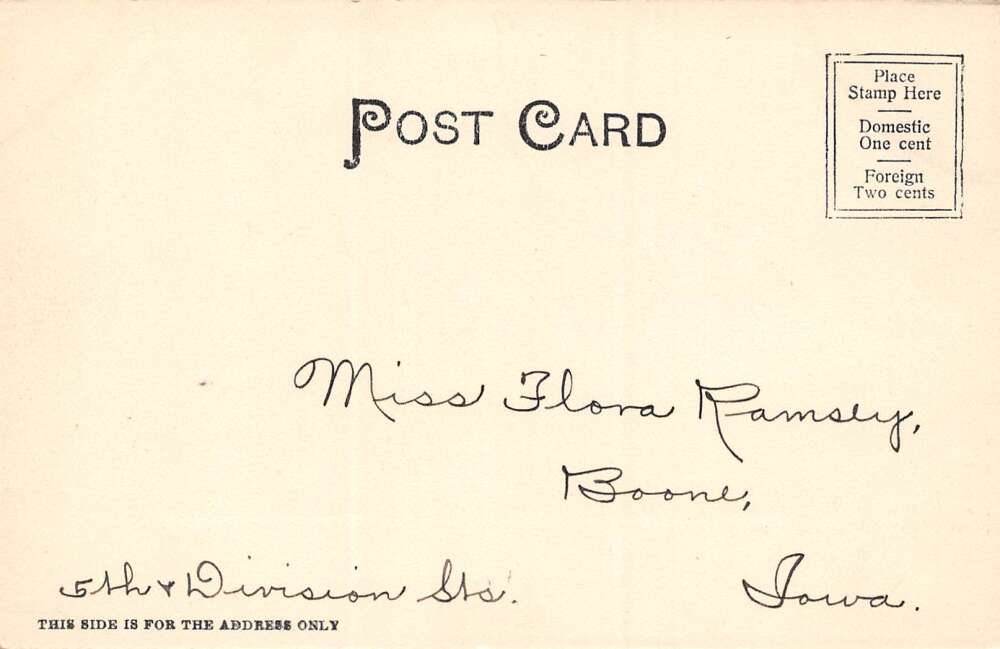 Place
Stamp Here
Domestic
One cent
Foreign
Two cents
POST CARD
Miss Flora Ramsey,
Boone,
Iowa.
5th & Division Sts.
THIS SIDE IS FOR THE ADDRESS ONLY